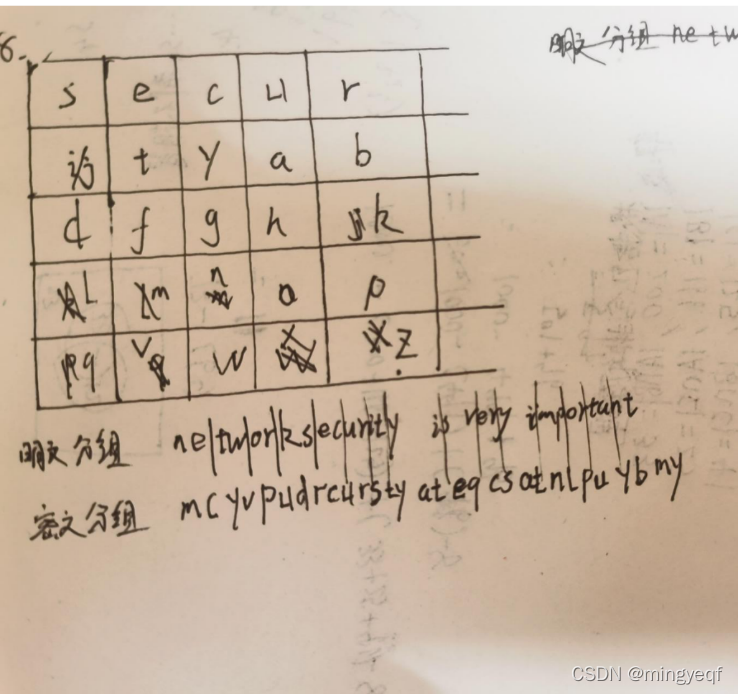 6.
明文分组 ne tw
s e c u r
t y a b
d f g h k
L m n o p
q v w x z
明文分组 ne|tw|or|ks|ec|ur|it|y is very important
密文分组 mcyvpudrcursty at eq cs ot nlpu yb my
CSDN @mingyeqf